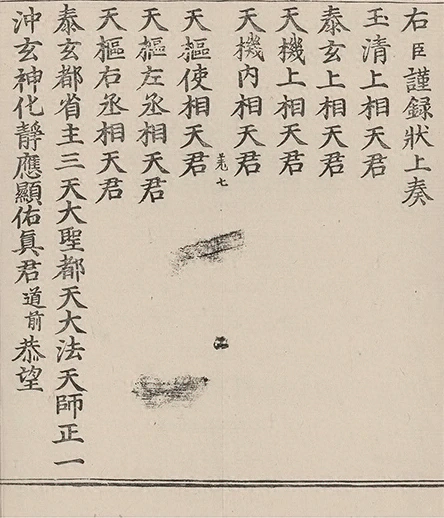 右臣謹録狀上奏
玉清上相天君
泰玄上相天君
天機上相天君
天機內相天君
天樞使相天君
天樞左丞相天君
天樞右丞相天君
泰玄都省主三天大聖都天大法天師正一
沖玄神化靜應顯佑眞君道前恭望